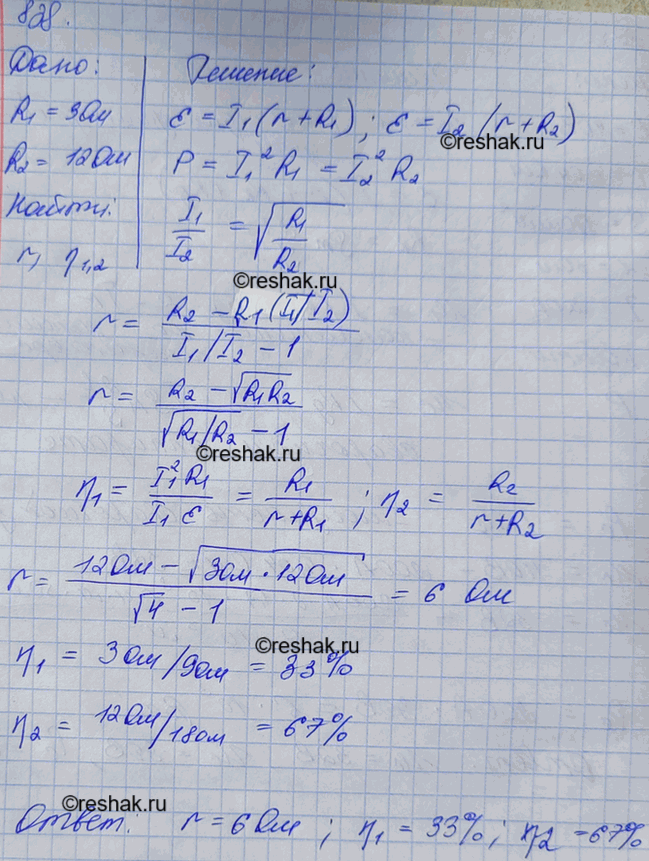 828.
Дано:
R₁ = 3 Ом
R₂ = 12 Ом
Найти:
r, η₁,₂
Решение:
ε = I₁(r + R₁); ε = I₂(r + R₂)
©reshak.ru
P = I₁² R₁ = I₂² R₂
I₁/I₂ = √(R₁/R₂)
©reshak.ru
r = (R₂ - R₁(I₁/I₂)) / (I₁/I₂ - 1)
r = (R₂ - √(R₁R₂)) / (√(R₁/R₂) - 1)
©reshak.ru
η₁ = I₁² R₁ / I₁ ε = R₁ / (r + R₁); η₂ = R₂ / (r + R₂)
r = (12 Ом - √(3 Ом · 12 Ом)) / (√4 - 1) = 6 Ом
©reshak.ru
η₁ = 3 Ом/9 Ом = 33%
η₂ = 12 Ом/18 Ом = 67%
©reshak.ru
Ответ: r = 6 Ом; η₁ = 33%; η₂ = 67%